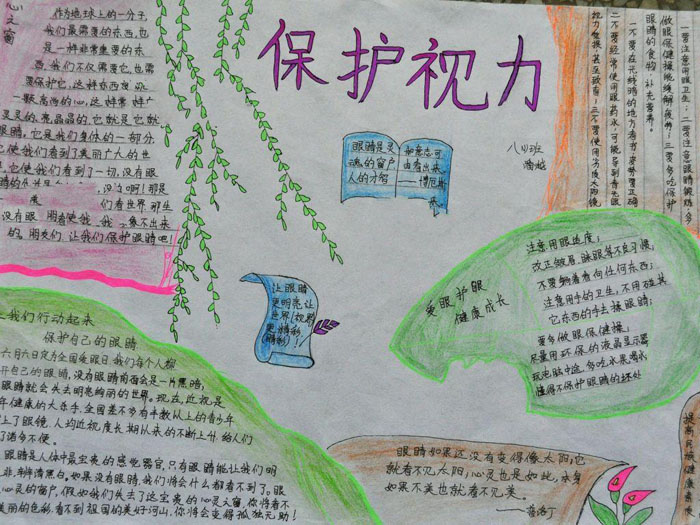 保护视力
八(4)班
心之窗
作为地球上的一分子
我们最需要的东西,也
是一样非常重要的东
西,我们不仅需要它,也需
要保护它,这样东西没
灵灵的,亮晶晶的,它就是它就
眼睛,它是我们身体的一部分
它使我们看到了美丽广大的世
它使我们看到了一切,没有眼
没了啊!那是
们看世界 那生
的。朋友们 让我们保护眼睛吧!
眼睛是灵
魂的窗户
人的才智
和意志可
由看出来
让眼睛
更明亮 让
世界(视界)
更精彩
爱眼护眼
健康成长
注意用眼适度;
改正皱眉、眯眼等不良习惯;
不要躺着看向任何东西;
注意用手的卫生,不用碰其
它东西的手去揉眼睛;
要多做眼保健操;
尽量用环保的液晶显示器
懂得不保护眼睛的坏处
一要注意用眼卫生 二要注意眼睛锻炼 多
做眼保健操能缓解疲劳;三要多吃保护
眼睛的食物,补充营养。
一不要在光线暗的地方看书 姿势要正确
二不要经常使用眼药水,可能导到青光眼
让我们行动起来
保护自己的眼睛
六月六日定为全国爱眼日 我们每个人都
开自己的眼睛,没有眼睛前面会是一片黑暗,
眼睛就会失去明亮绚丽的世界。现在,近视是
年健康的大杀手,全国差不多有半数以上的青少年
上了眼镜,人均近视度长期以来的不断上升,给人们
了诸多不便。
眼睛是人体中最宝贵的感觉器官,只有眼睛能让我们明
非,辨清黑白。如果没有眼睛,我们将会什么都看不到了。眼
心灵的窗户,假如我们失去了这宝贵的心灵之窗,你将看不
美丽的色彩,看不到祖国的美好河山,你将会变得孤独无助!
眼睛如果还没有变得像太阳,它
就看不见太阳;心灵也是如此,本身
如果不美也就看不见美。